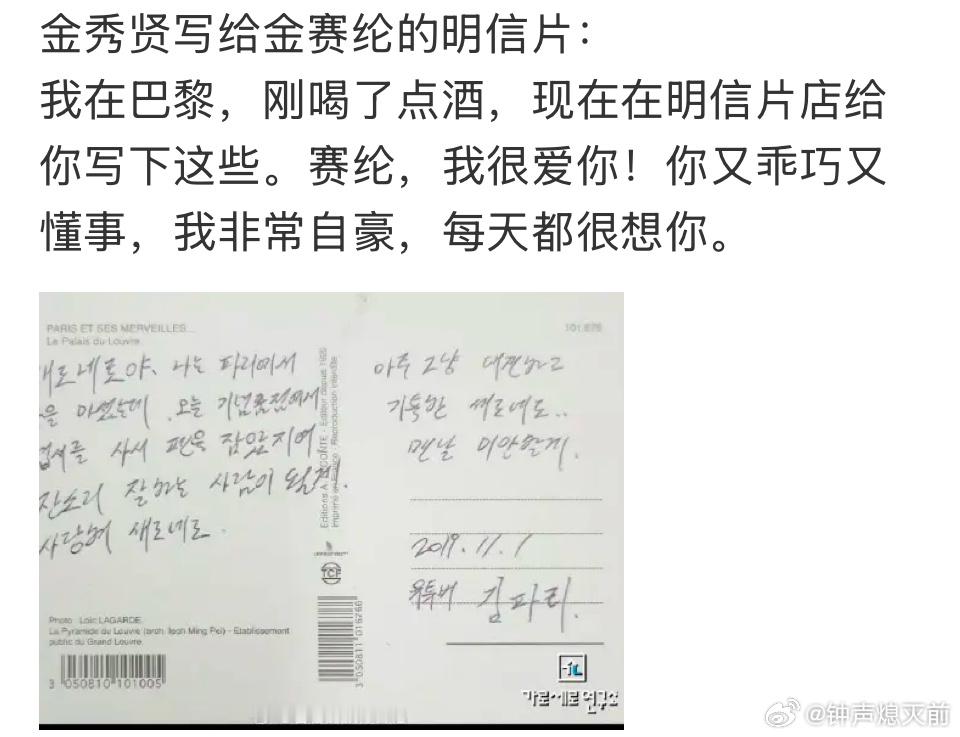 金秀贤写给金赛纶的明信片：
我在巴黎，刚喝了点酒，现在在明信片店给
你写下这些。赛纶，我很爱你！你又乖巧又
懂事，我非常自豪，每天都很想你。
PARIS ET SES MERVEILLES...
Le Palais du Louvre
새로네로야. 나는 파리에서
을 마셨는데 오늘 기념품점에서
엽서를 사서 펜을 잡았지여
잔소리 잘하는 사람이 될게.
사랑해 새로네로.
Photo : Loïc LAGARDE.
La Pyramide du Louvre (arch. Ieoh Ming Pei) - Etablissement
public du Grand Louvre.
3 050810 101005
3 050811 016266
TCF
아주 그냥 대견하고
기특한 새로네로..
맨날 미안할게.
2019.11.1
유튜버 김파리.
가로세로연구소
@钟声熄灭前